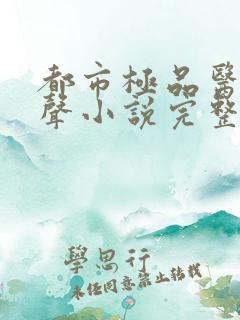 都市極品醫
聲小說完整
學思行
未經同意禁止轉載